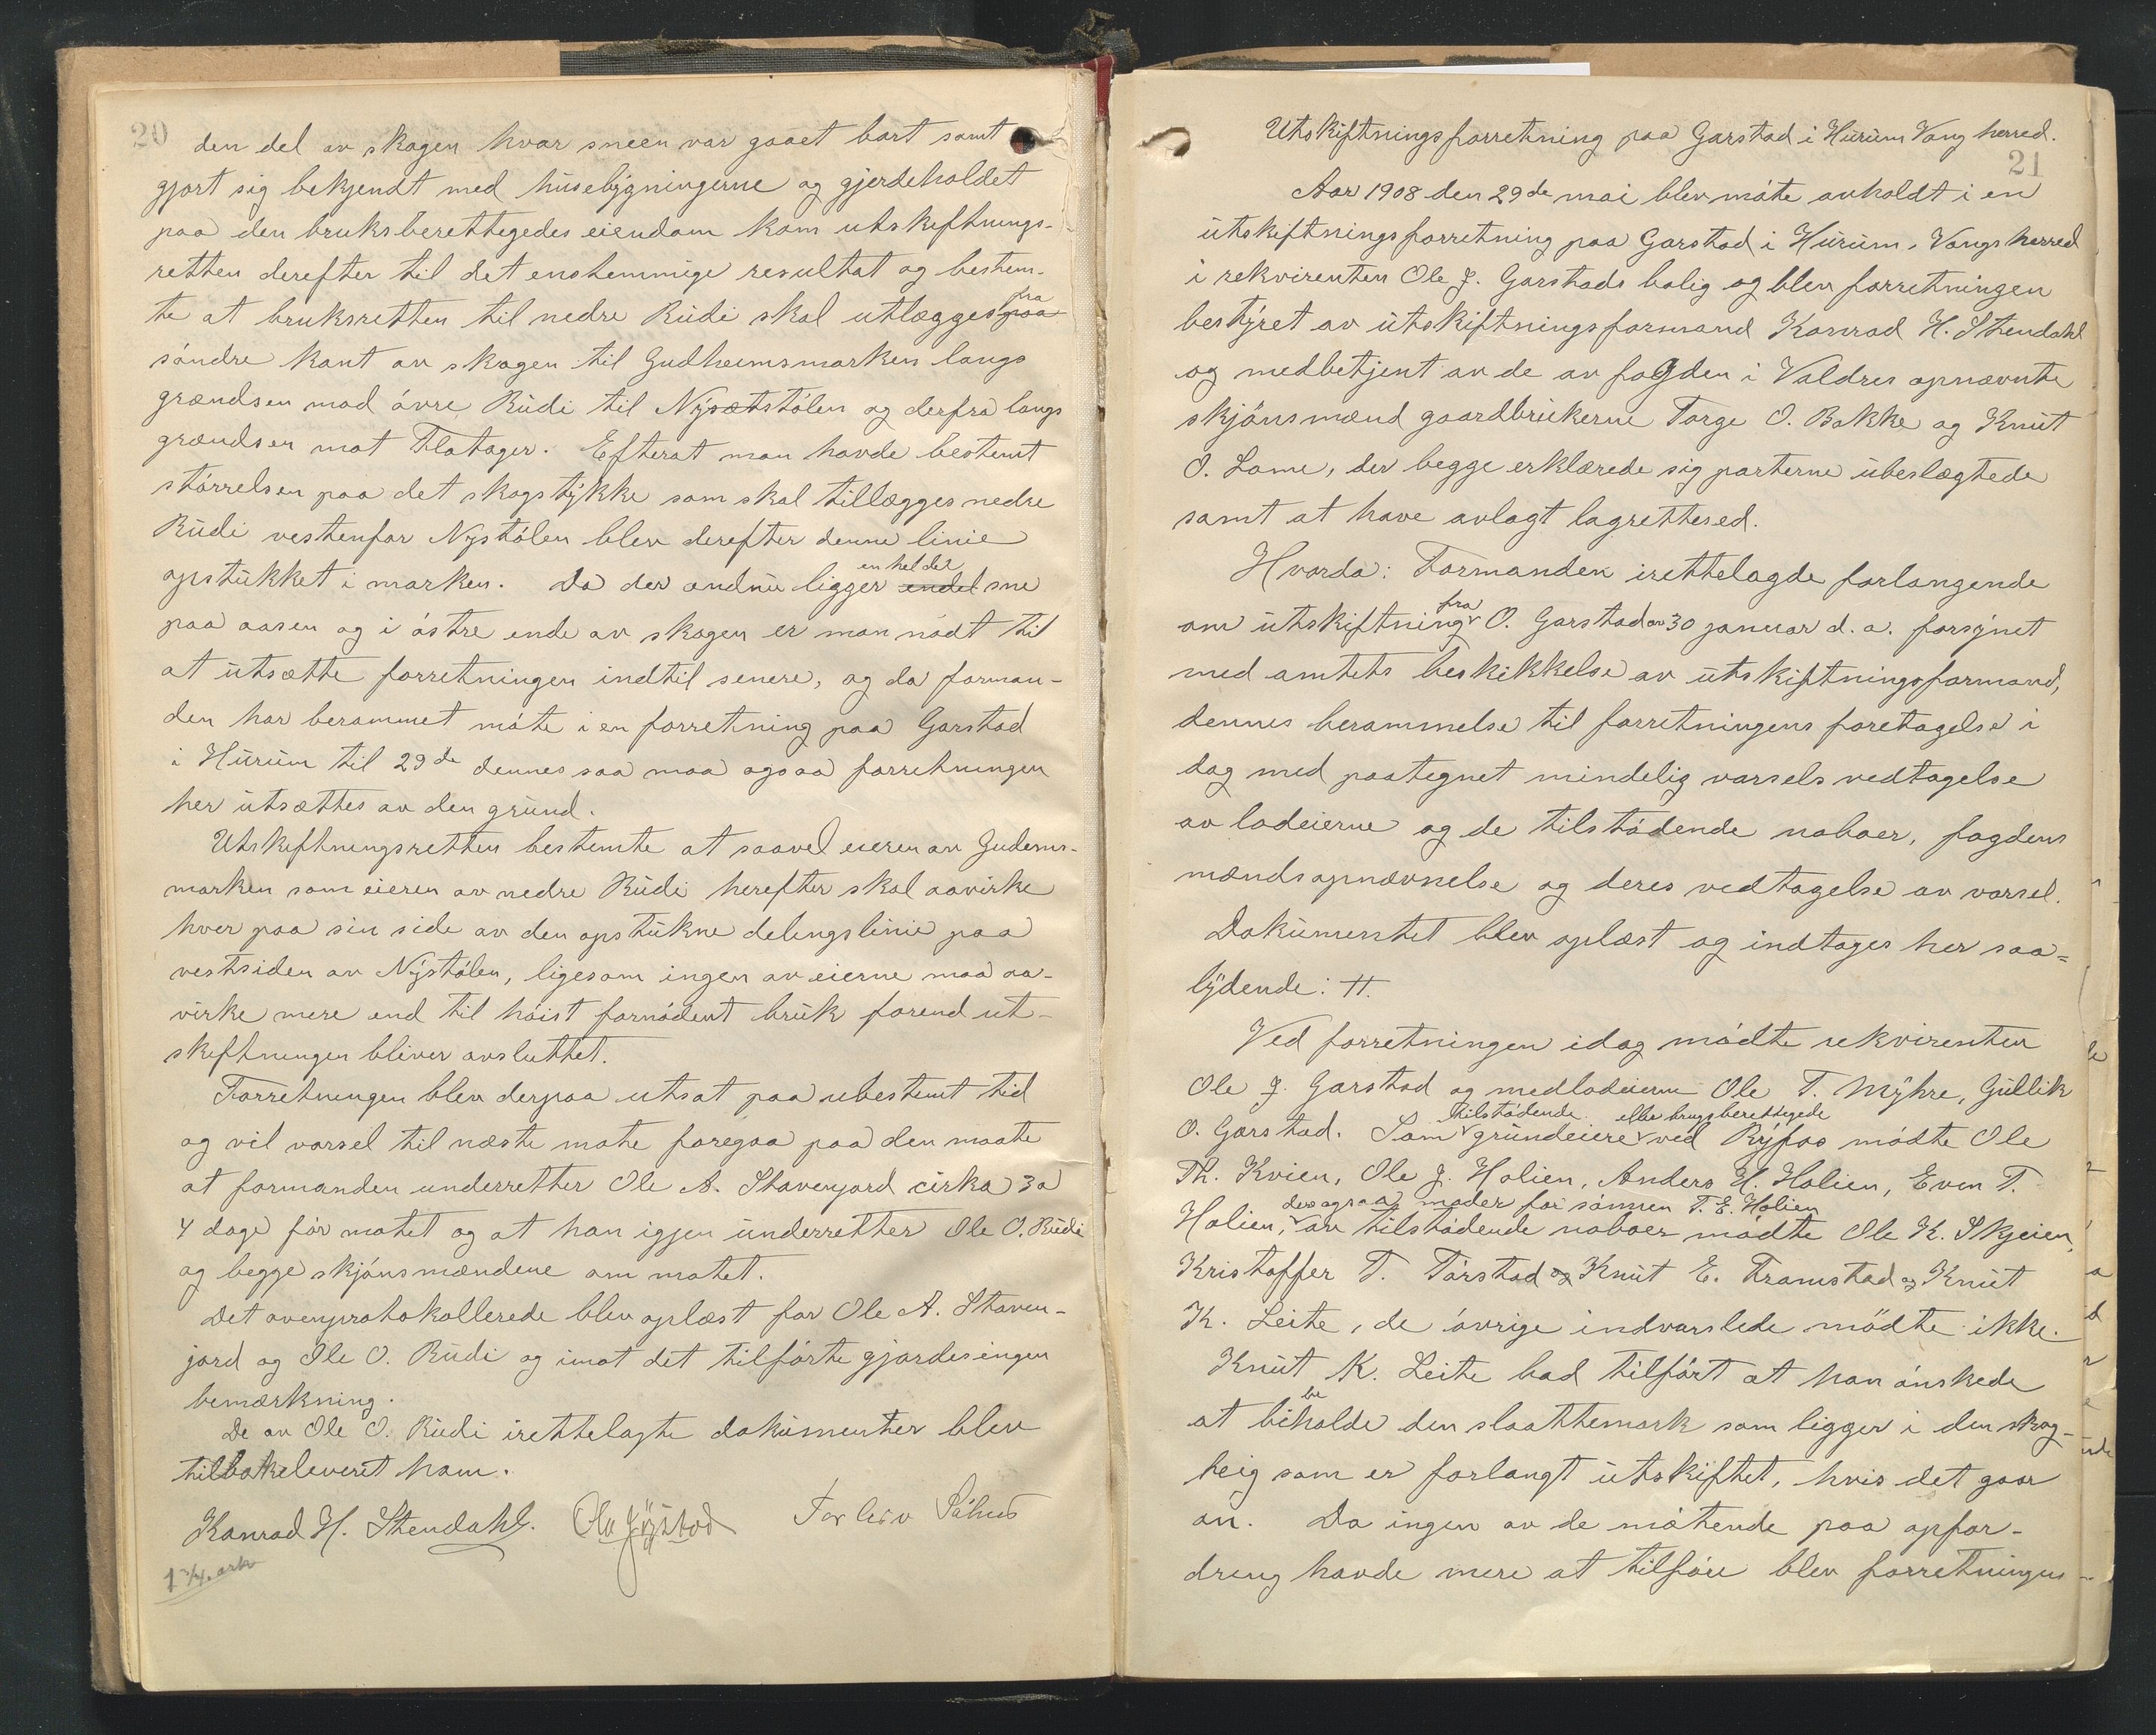 20
den del av skogen hvor sneen var gaaet bort samt
gjort sig bekjendt med husebygningerne og gjerdeholdet
paa den bruksberettigedes eiendom kom utskiftnings-
retten derefter til det enstemmige resultat og bestem-
te at bruksretten til nedre Rudi skal utlægges fra paa
søndre kant av skogen til Gudheimsmarken langs
grændsen mod øvre Rudi til Nysætstølen og derfra langs
grændsen mot Flatager. Efterat man havde bestemt
størrelsen paa det skogstykke som skal tillægges nedre
Rudi vestenfor Nystølen blev derefter denne linie
opstukket i marken. Da der endnu ligger endel en hel del sne
paa aasen og i østre ende av skogen er man nødt til
at utsætte forretningen indtil senere, og da forman-
den har berammet møte i en forretning paa Garstad
i Hurum til 29de dennes saa maa ogsaa forretningen
her utsættes av den grund.
Utskiftningsretten bestemte at saavel eieren av Gudems-
marken som eieren av nedre Rudi herefter skal aavirke
hver paa sin side av den opstukne delingslinie paa
vestsiden av Nystølen, ligesom ingen av eierne maa aa-
virke mere end til høist fornødent bruk forend ut-
skiftningen bliver avsluttet.
Forretningen blev derpaa utsat paa ubestemt tid
og vil varsel til næste møte foregaa paa den maate
at formanden underretter Ole A. Stavenjord cirka 3 a
4 dage før møtet og at han igjen underretter Ole O. Rudi
og begge skjønsmændene om møtet.
Det ovenprotokollerede blev oplæst for Ole A. Staven-
jord og Ole O. Rudi og imot det tilførte gjordes ingen
bemærkning.
De av Ole O. Rudi irettelagte dokumenter blev
tilbakeleveret ham.
Konrad H. Stendahl. Ola Torleiv
1 1/4 ark
Utskiftningsforretning paa Garstad i Hurum Vang herred.
21
Aar 1908 den 29de mai blev møte avholdt i en
utskiftningsforretning paa Garstad i Hurum, Vangs herred
i rekvirenten Ole J. Garstads bolig og blev forretningen
bestyret av utskiftningsformand Konrad H. Stendahl
og medbetjent av de av fogden i Valdres opnævnte
skjønsmænd gaardbrukerne Torge O. Bakke og Knut
O. Lome, der begge erklærede sig parterne ubeslægtede
samt at have avlagt lagrettesed.
Hvorda: Formanden irettelagde forlangende
om utskiftning fra O. Garstad av 30 januar d. a. forsynet
med amtets beskikkelse av utskiftningsformand,
dennes berammelse til forretningens foretagelse i
dag med paategnet mindelig varsels vedtagelse
av lodeierne og de tilstødende naboer, fogdens
mændsopnævnelse og deres vedtagelse av varsel.
Dokumentet blev oplæst og indtages her saa-
lydende: #.
Ved forretningen idag mødte rekvirenten
Ole J. Garstad og medlodeierne Ole T. Myhre, Gullik
O. Garstad. Som tilstødende grundeiere eller brugsberettigede ved Ryfos mødte Ole
Th. Kvien, Ole J. Holien, Anders H. Holien, Even T.
Holien, der ogsaa møder for sønnen T. E. Holien av tilstødende naboer mødte Ole K. Skjeien,
Kristoffer T. Tørstad og Knut E. Framstad og Knut
K. Leite, de øvrige indvarslede mødte ikke.
Knut K. Leite bad tilført at han ønskede
at beholde den slaattemark som ligger i den skog-
teig som er forlangt utskiftet, hvis det gaar
an. Da ingen av de møtende paa opfor-
dring havde mere at tilføie blev forretningens